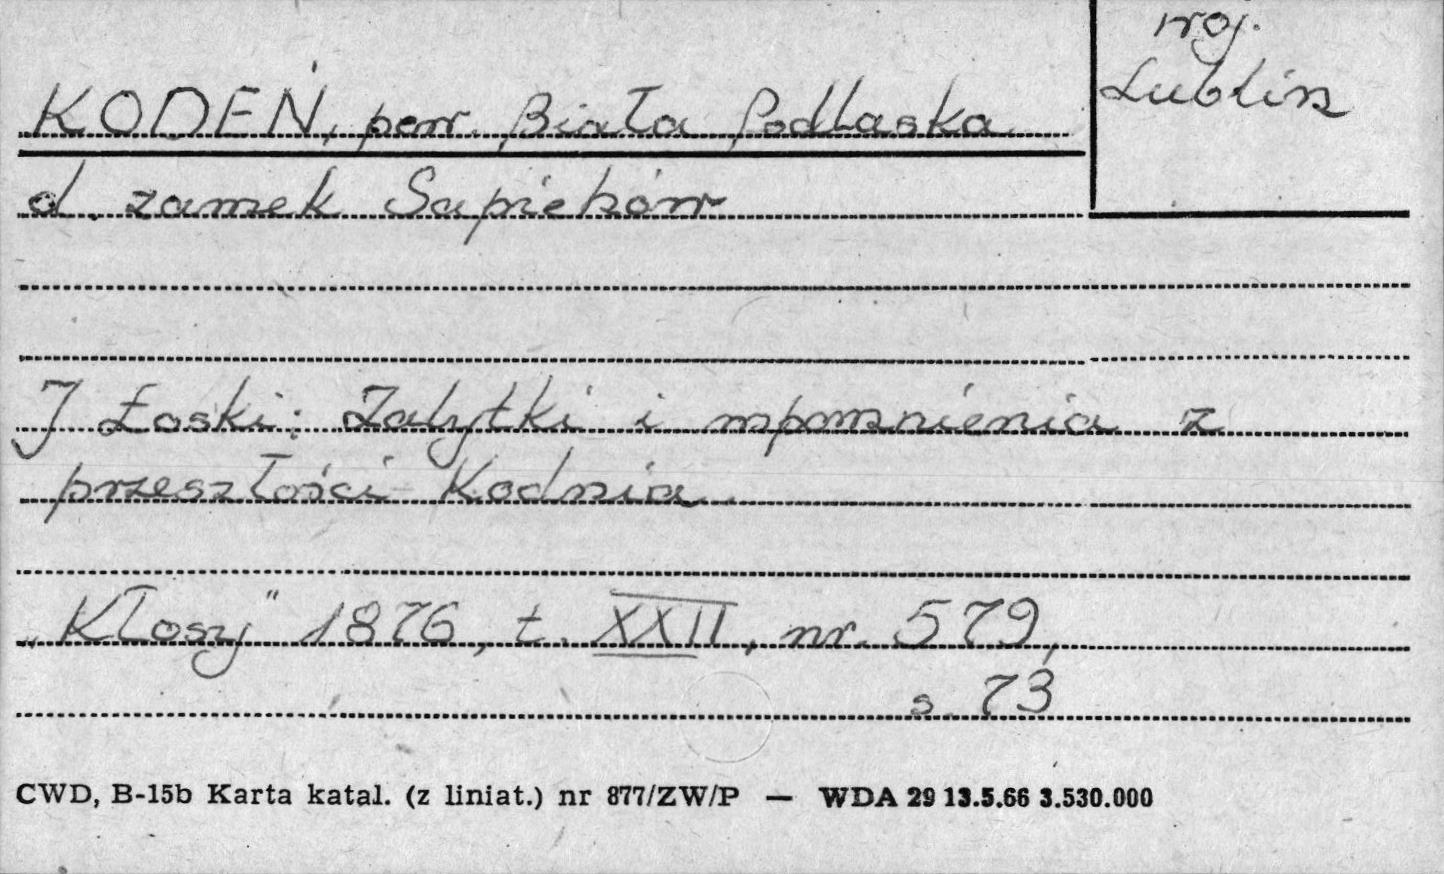 woj.
Lublin
KODEŃ, pow. Biała Podlaska
d. zamek Sapiehów
J Łoski: Zabytki i wspomnienia z
przeszłości Kodnia.
„Kłosy" 1876, t. XXII, nr. 579,
s. 73
CWD, B-15b Karta katal. (z liniat.) nr 877/ZW/P — WDA 29 13.5.66 3.530.000